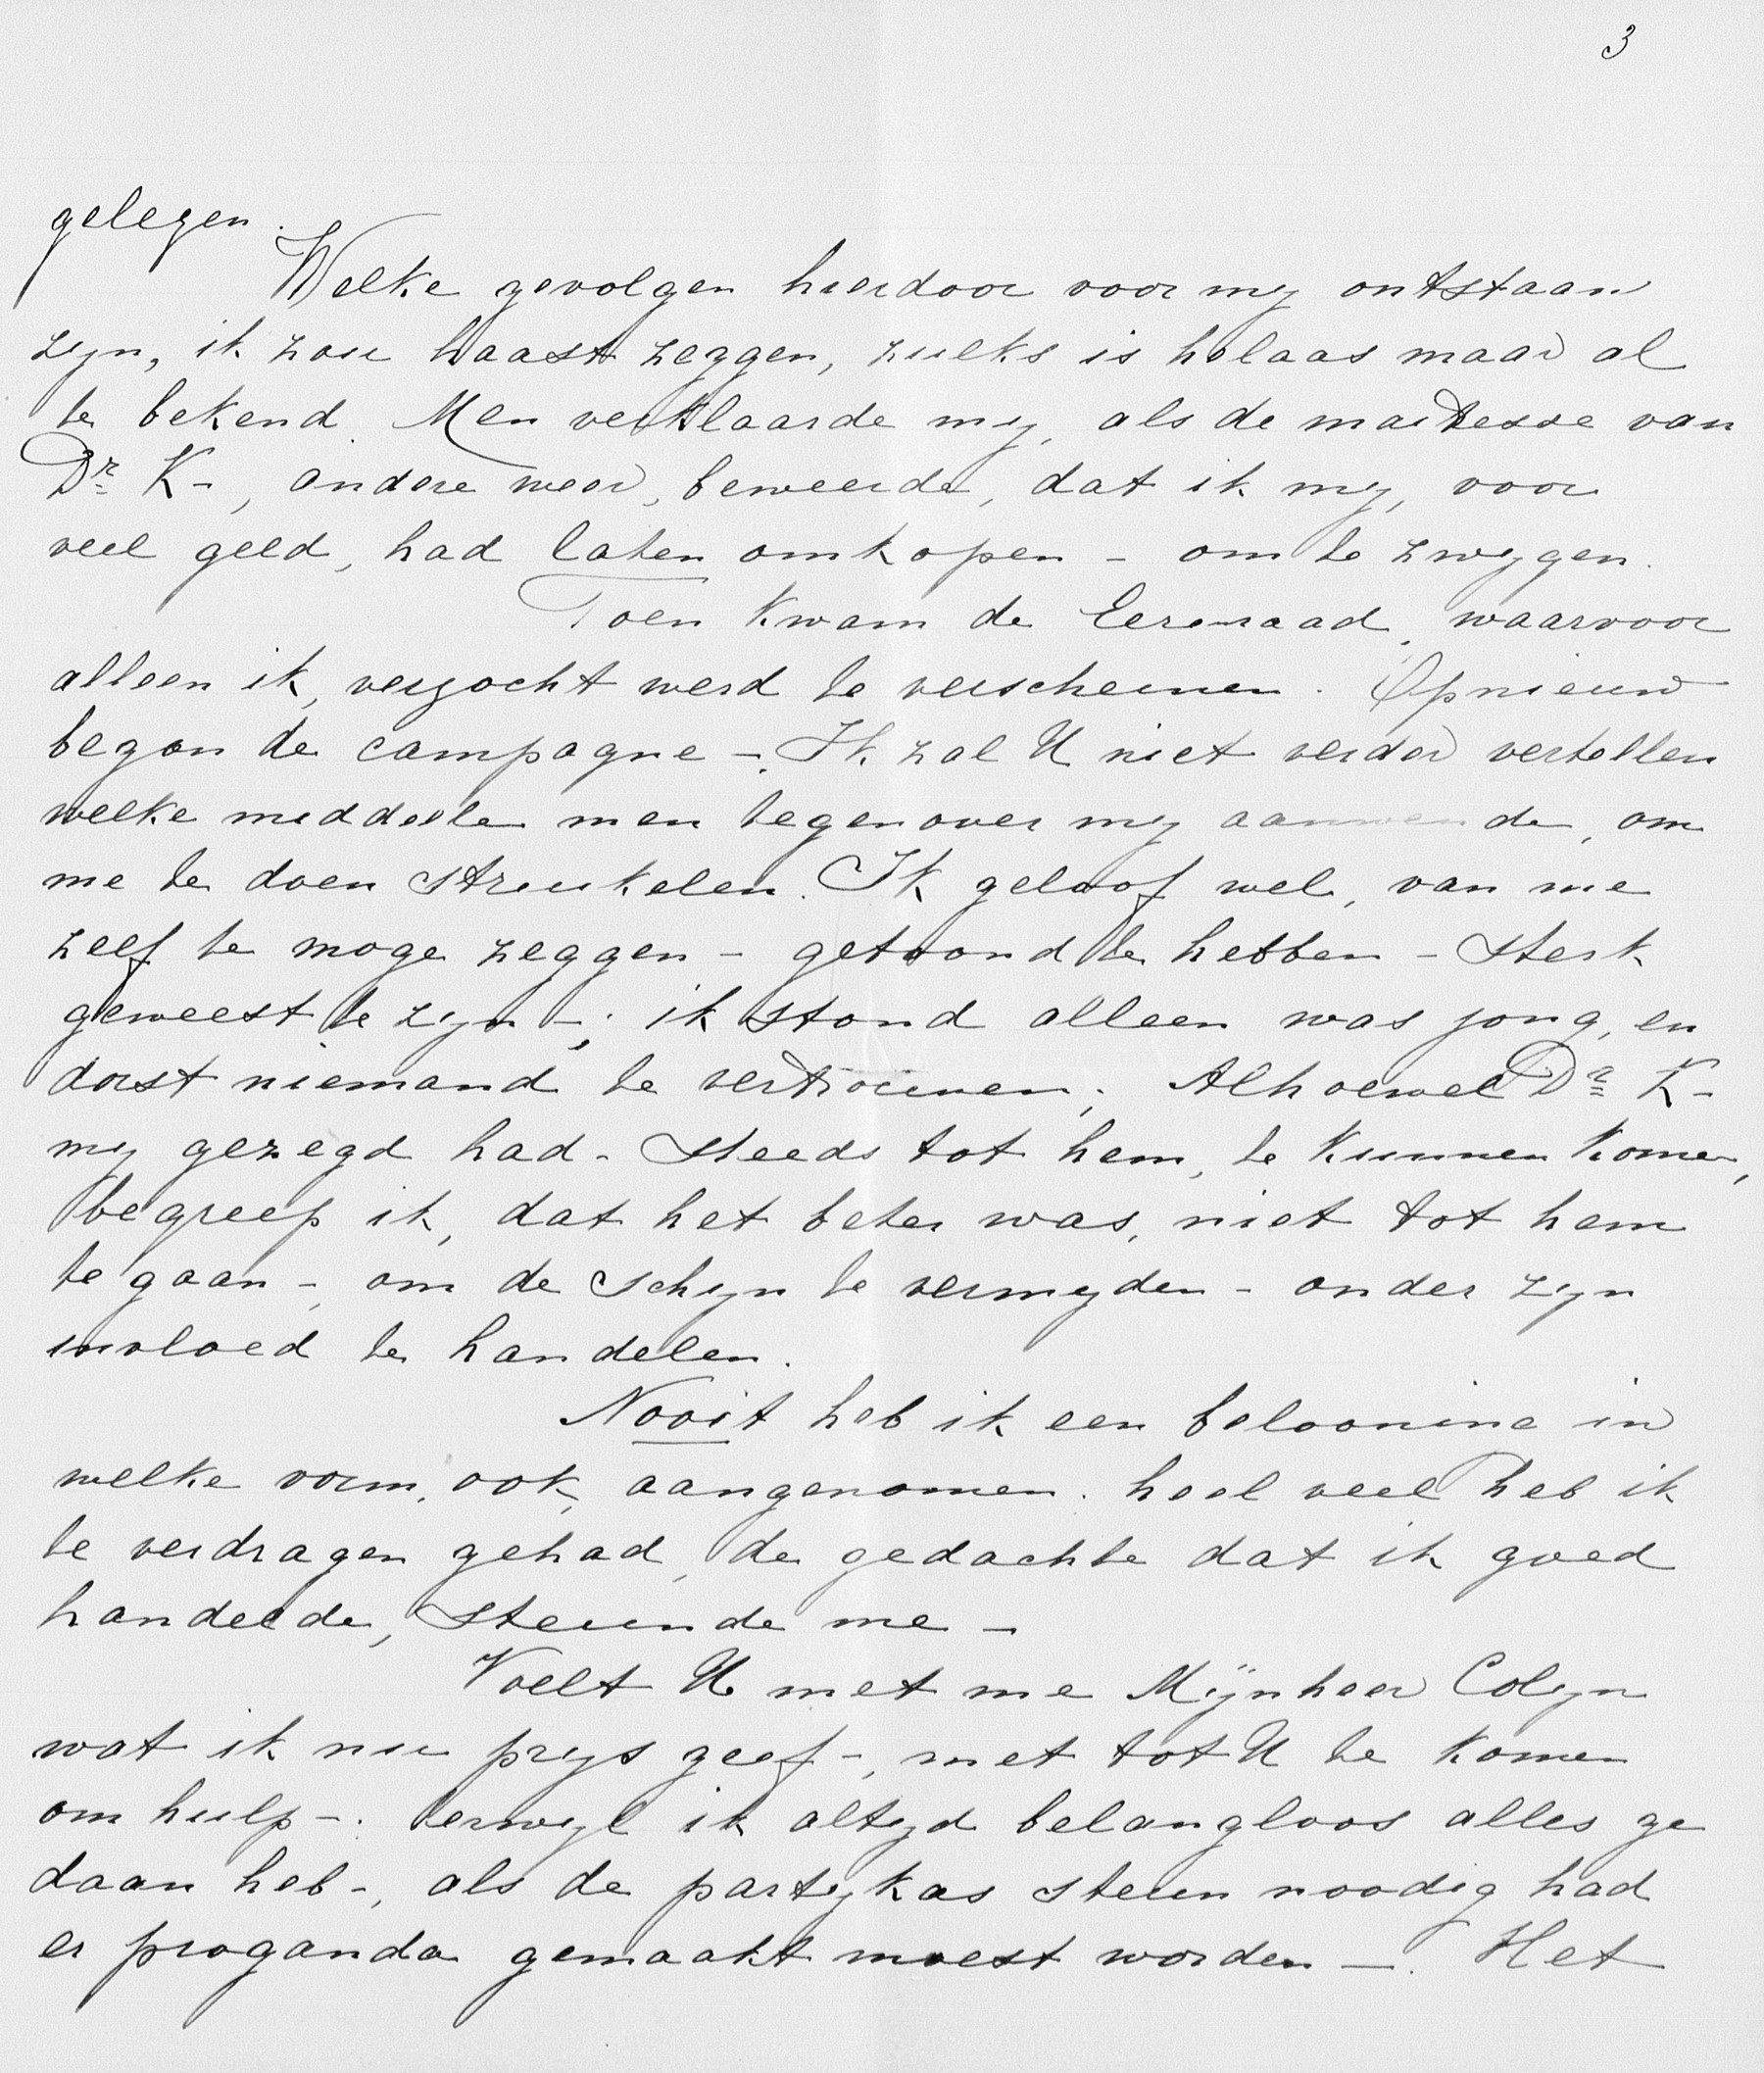 3
gelegen.
Welke gevolgen hierdoor voor my ontstaan
zyn, ik zou haast zeggen, zulks is helaas maar al
te bekend. Men verklaarde my, als de maitresse van
Dr K-, andere weer, beweerde, dat ik my, voor
veel geld, had laten omkopen - om te zwygen.
Toen kwam de Eereraad, waarvoor
alleen ik, verzocht werd te verschenen. Opnieuw
begon de campagne -. Ik zal U niet verder vertellen
welke middelen men tegenover my aanwende, om
me te doen struikelen. Ik geloof wel, van me
zelf te moge zeggen - getoond te hebben - sterk
geweest te zyn -; ik stond alleen was jong, en
dorst niemand te vertrouwen; Alhoewel Dr K-
my gezegd had - steeds tot hem, te kunnen komen,
begreep ik, dat het beter was, niet tot hem
te gaan -, om de schyn te vermyden - onder zyn
invloed te handelen.
Nooit heb ik een belooning in
welke vorm, ook, aangenomen. heel veel heb ik
te verdragen gehad, de gedachte dat ik goed
handelde, steunde me -
Voelt U met me Mijnheer Colyn
wat ik nu prys geef -, met tot U te komen
om hulp -. terwyl ik altyd belangloos alles ge
daan heb -, als de partykas steun noodig had
er proganda gemaakt moest worden -. Het